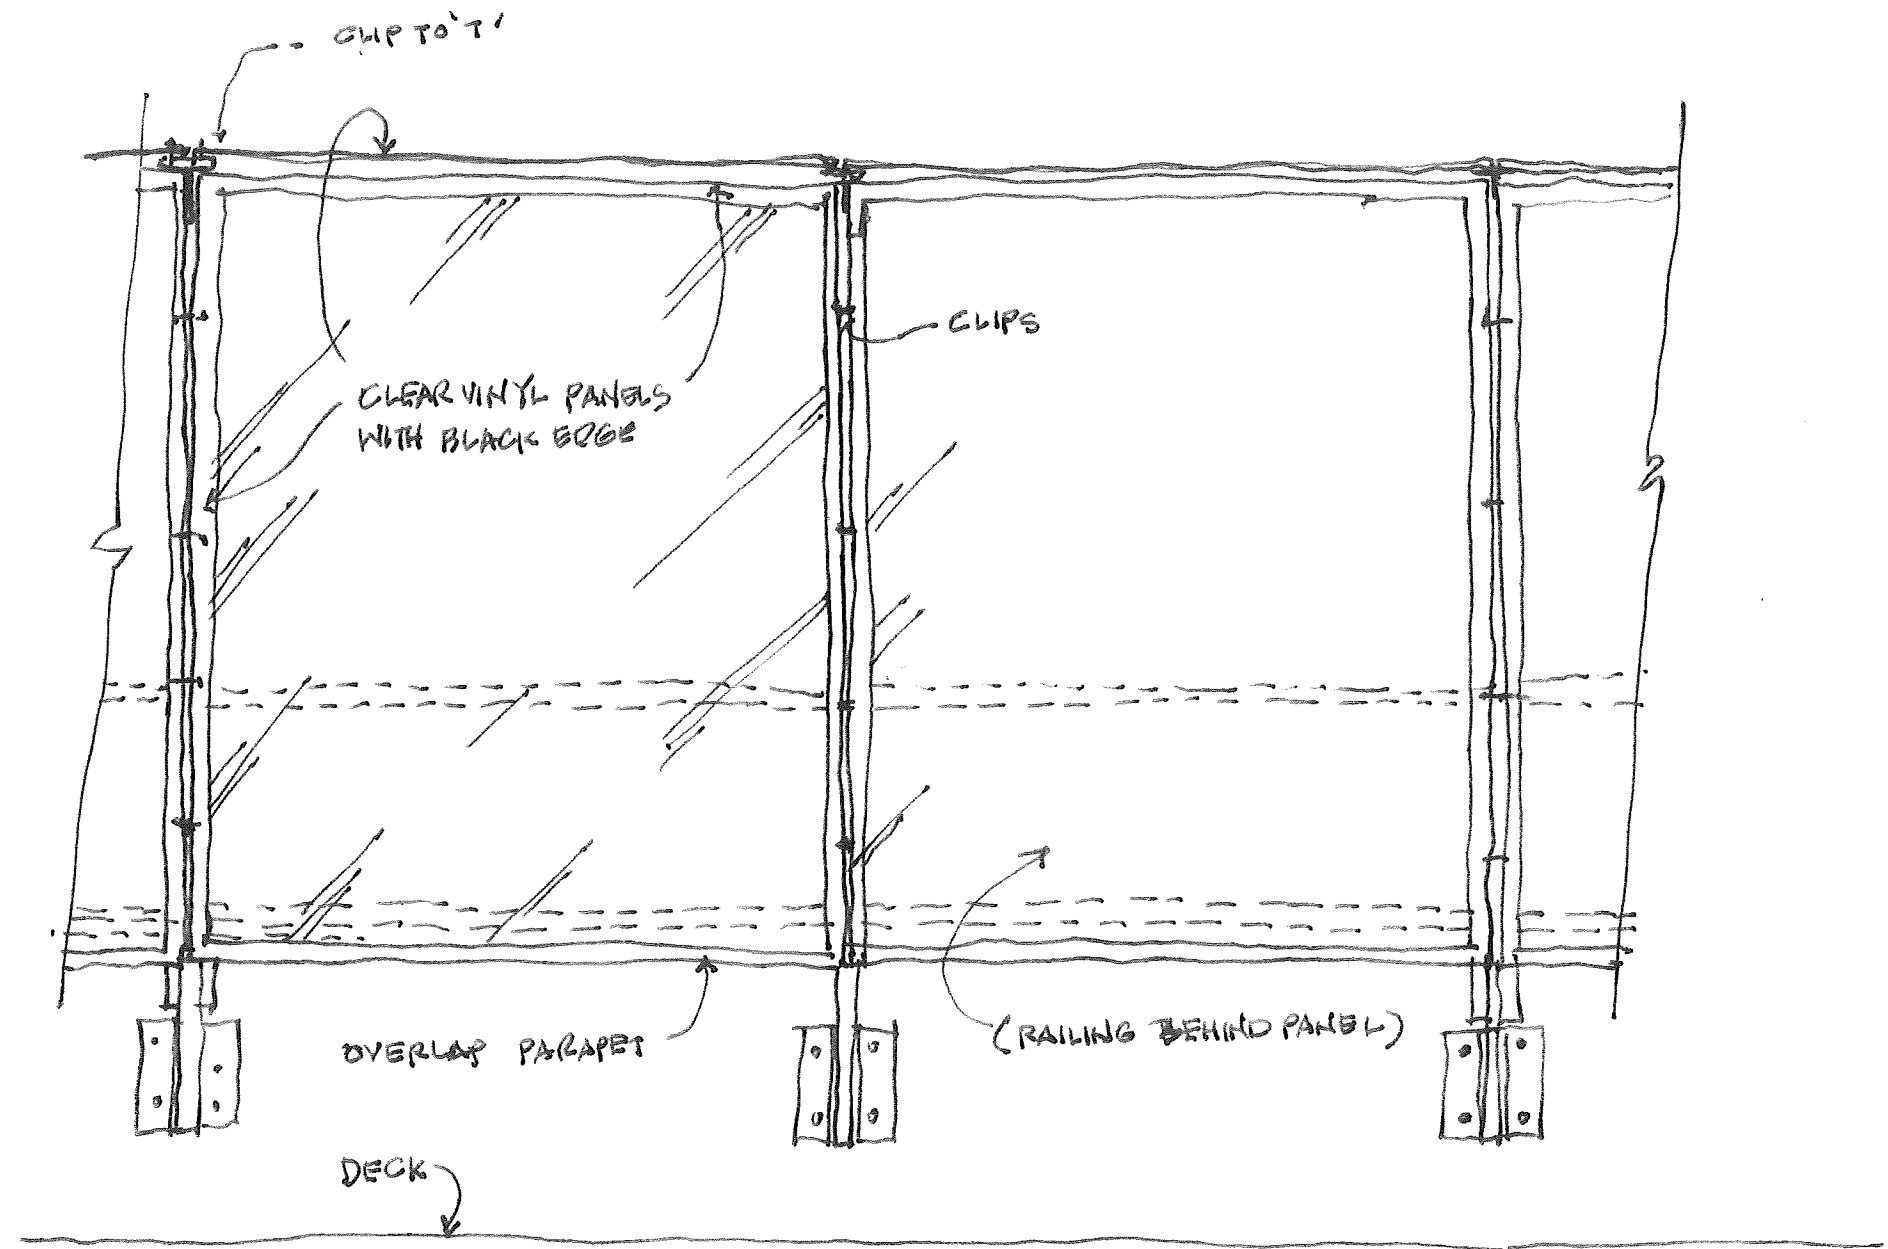 CLIP TO 'T'
CLIPS
CLEAR VINYL PANELS
WITH BLACK EDGE
OVERLAP PARAPET
(RAILING BEHIND PANEL)
DECK